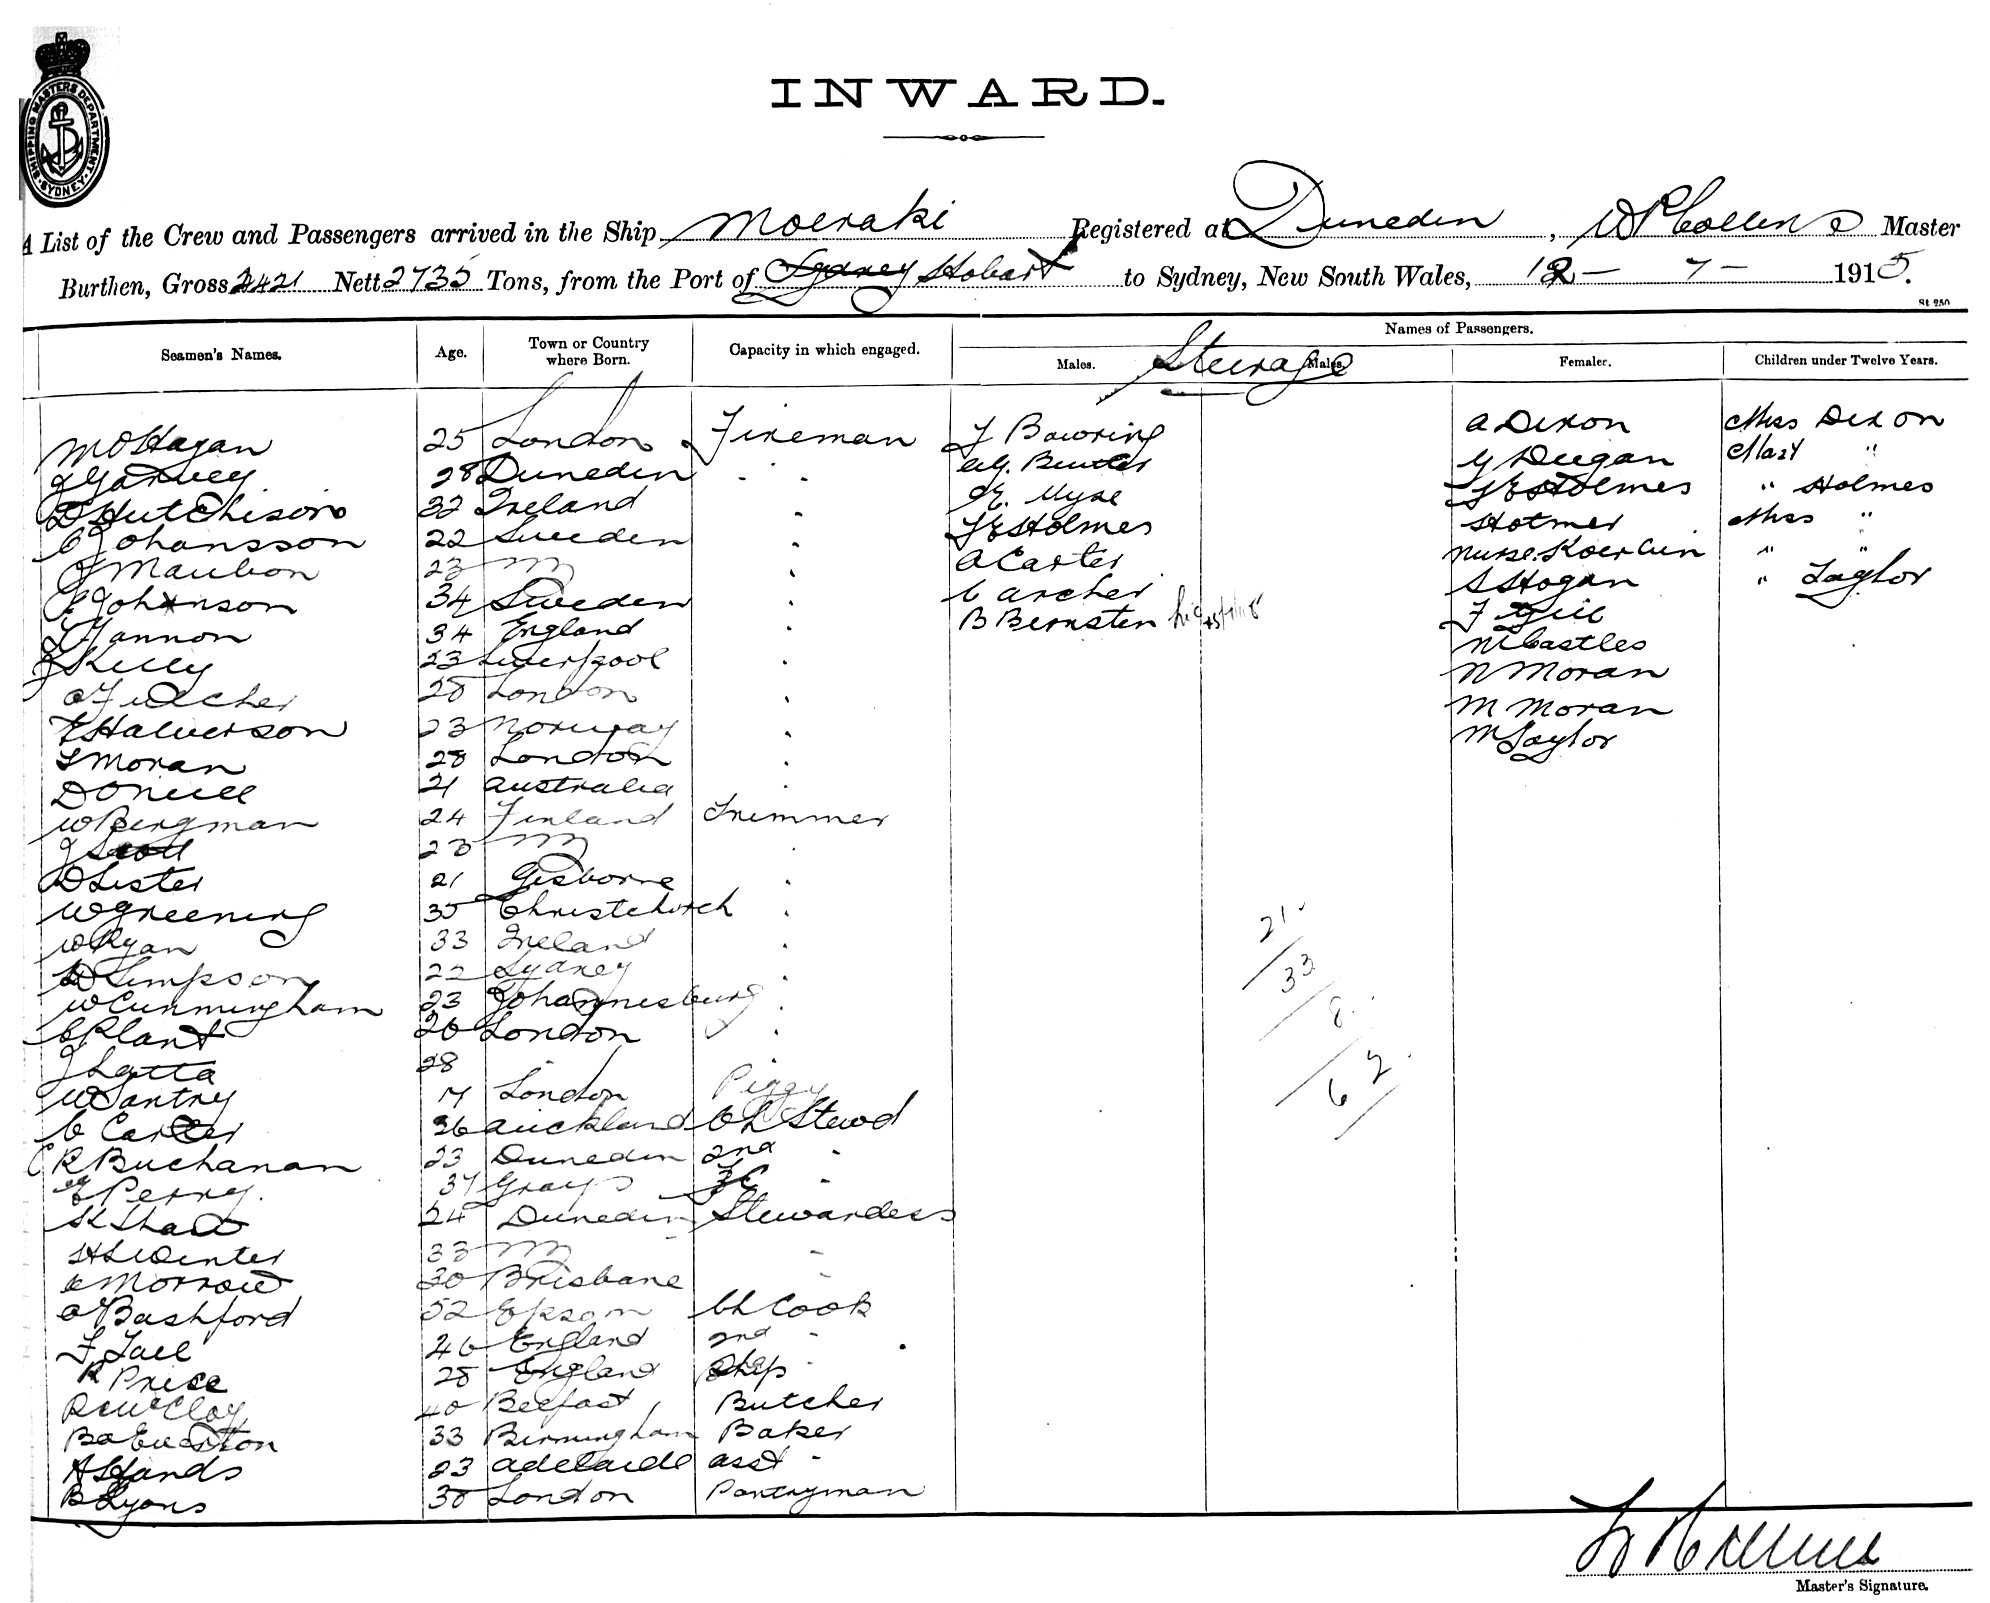 SHIPPING MASTERS DEPARTMENT · SYDNEY ·
INWARD.
A List of the Crew and Passengers arrived in the Ship Moeraki Registered at Dunedin, W P Collins Master
Burthen, Gross 4421 Nett 2735 Tons, from the Port of Sydney Hobart to Sydney, New South Wales, 12 - 7 - 1915.
St 250
Names of Passengers.
Seamen's Names. Age. Town or Country where Born. Capacity in which engaged. Males. Steerage Males. Females. Children under Twelve Years.
M O'Hagan 25 London Fireman J Bowring A Dixon Miss Dixon
J Garvey 28 Dunedin " " G Deegan Mast "
D Hutchison 32 Ireland " Uyse J E Holmes " Holmes
C Johansson 22 Sweden " J E Holmes Miss "
J Maubon 23 " A Carter Nurse " "
Johnson 34 Sweden " C Archer S Hogan " Taylor
Hannon 34 England " B Bernsten F Gill
J Kelly 23 Liverpool " M Castles
28 London " N Moran
E Halverson 23 Norway " M Moran
T Moran 28 London " M Taylor
D O'Neill 21 Australia "
W Bergman 24 Finland Trimmer
J Scott 23 "
D Lister 21 Gisborne "
W Greening 35 Christchurch "
W Ryan 33 Ireland "
D Simpson 22 Sydney "
W Cunningham 23 Johannesburg "
C Plant 26 London "
J Latta 28 "
W Santry 17 London Peggy
C Carter 36 Auckland Ch Stewd
C R Buchanan 23 Dunedin 2nd "
E Perry 37 Grays "
Shaw 24 Dunedin Stewardess
H S Winter 33 "
E Morrow 30 Brisbane "
A Bashford 52 Epsom Ch Cook
F Tall 26 England 2nd "
R Price 28 England Ships "
R McCloy 40 Belfast Butcher
B Everton 33 Birmingham Baker
A Hands 23 Adelaide asst "
B Lyons 30 London Pantryman
21
33
8
62
W P Collins
Master's Signature.